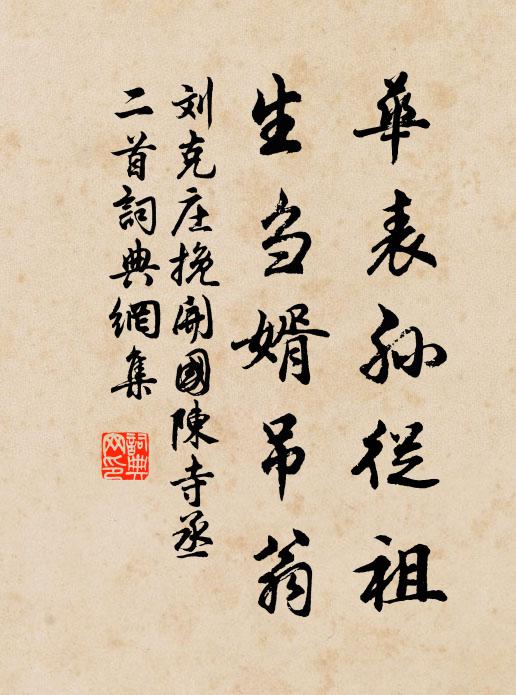 華表孙從祖
生刍婿吊翁
刘克庄挽開國陳寺丞
二首詞典網集
詞典網印